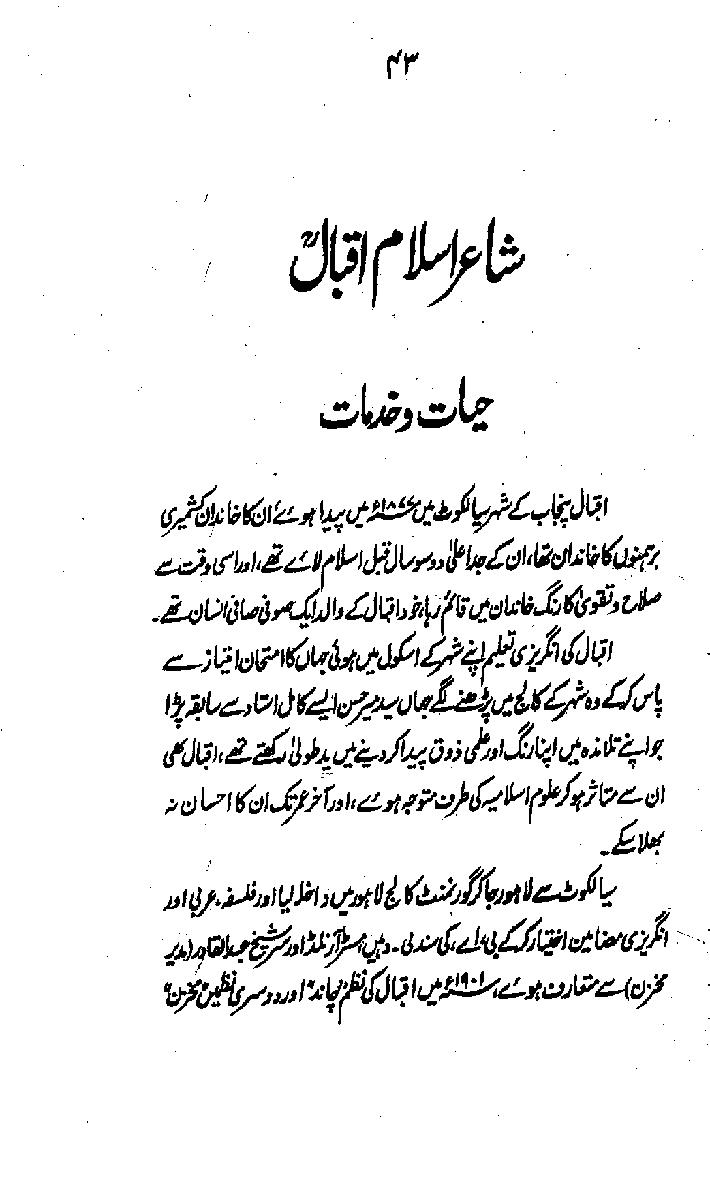 ۴۳
شاعر اسلام اقبالؒ
حیات و خدمات
اقبال پنجاب کے شہر سیالکوٹ میں ۱۸۷۷ء میں پیدا ہوئے ان کا خاندان کشمیری
برہمنوں کا خاندان تھا، ان کے جد اعلیٰ دو سو سال قبل اسلام لائے تھے، اور اسی وقت سے
صلاح و تقویٰ کا رنگ خاندان میں قائم رہا، خود اقبال کے والد ایک صوفی صافی انسان تھے۔
اقبال کی انگریزی تعلیم اپنے شہر کے اسکول میں ہوئی جہاں کا امتحان امتیاز سے
پاس کر کے وہ شہر کے کالج میں پڑھنے لگے جہاں سید میر حسن ایسے کامل استاد سے سابقہ پڑا
جو اپنے تلامذہ میں اپنا رنگ اور علمی ذوق پیدا کر دینے میں ید طولیٰ رکھتے تھے، اقبال بھی
ان سے متاثر ہو کر علوم اسلامیہ کی طرف متوجہ ہوئے، اور آخر عمر تک ان کا احسان نہ
بھلا سکے۔
سیالکوٹ سے لاہور جا کر گورنمنٹ کالج لاہور میں داخلہ لیا اور فلسفہ، عربی اور
انگریزی مضامین اختیار کر کے بی، اے، کی سند لی۔ وہیں مسٹر آرنلڈ اور سر شیخ عبدالقادر (مدیر
مخزن) سے متعارف ہوئے، ۱۹۰۱ء میں اقبال کی نظم "چاند" اور دوسری نظمیں "مخزن"